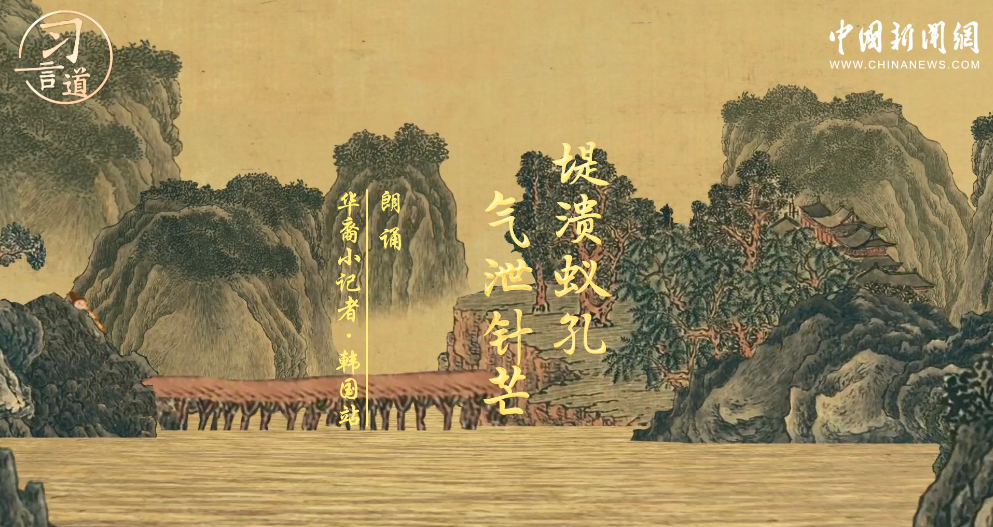 习
言道
中國新聞網
WWW.CHINANEWS.COM
堤溃蚁孔
气泄针芒
朗诵
华裔小记者·韩国站